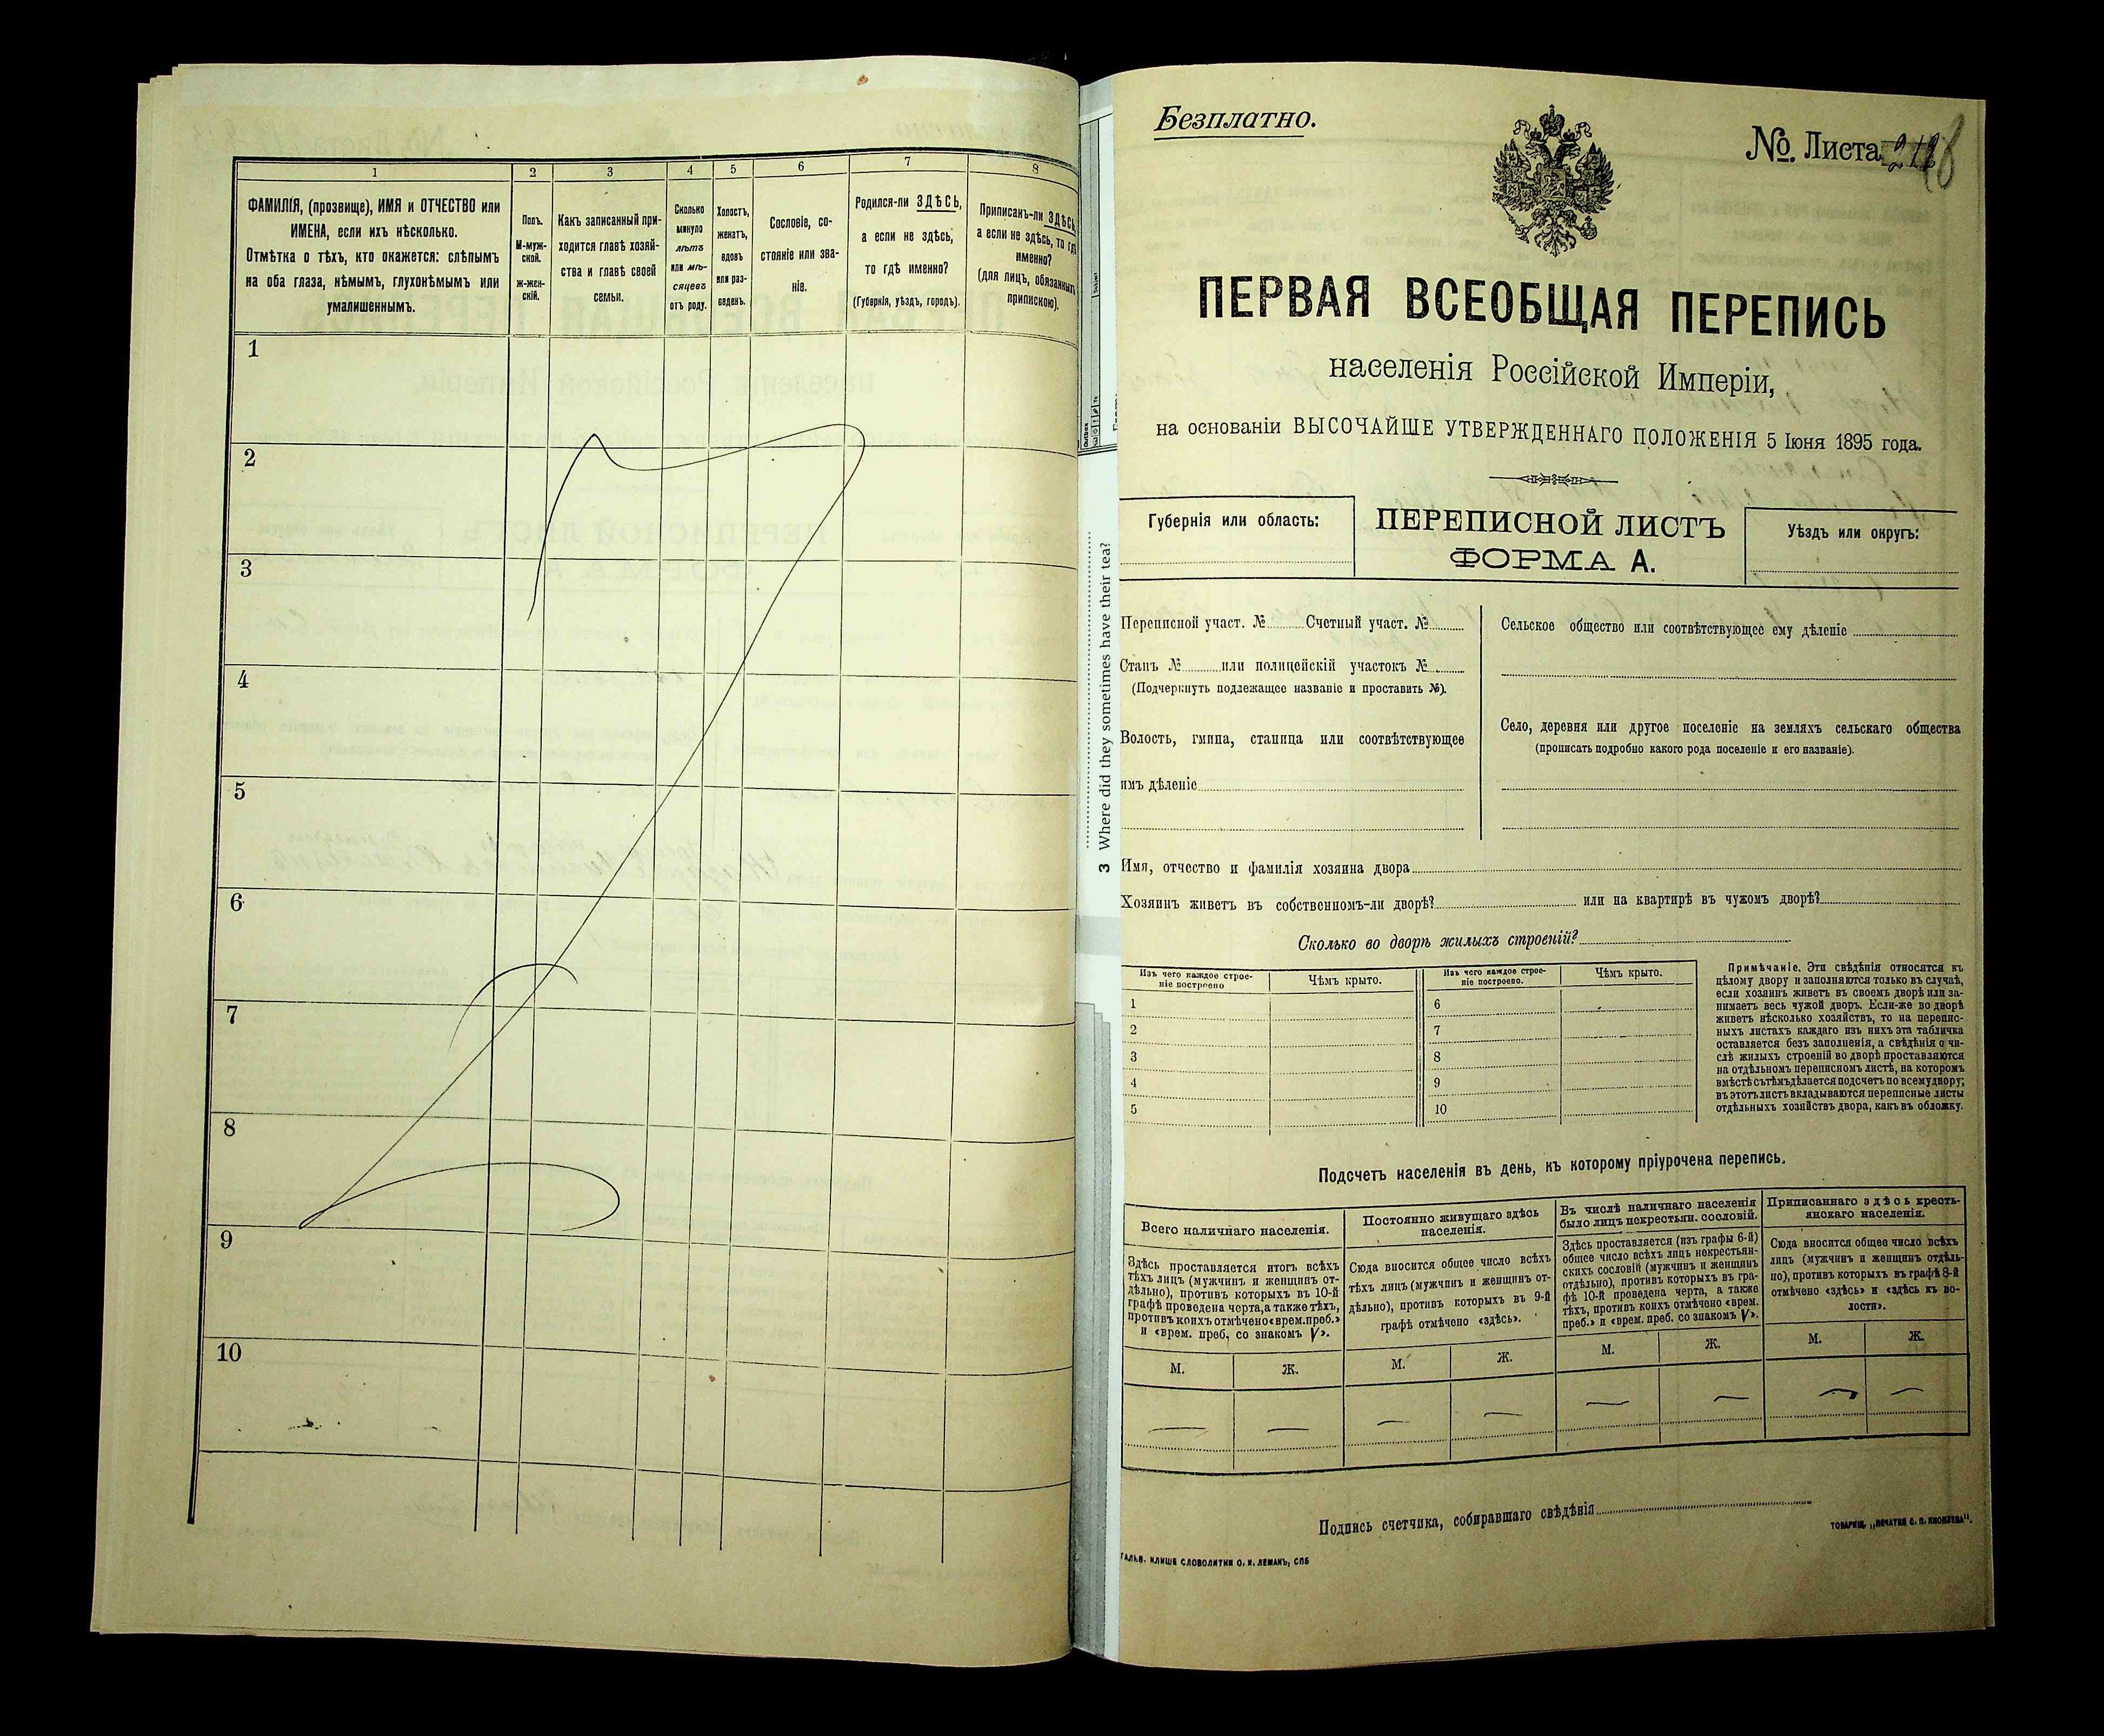 1 2 3 4 5 6 7 8
ФАМИЛІЯ, (прозвище), ИМЯ и ОТЧЕСТВО или
ИМЕНА, если ихъ нѣсколько.
Отмѣтка о тѣхъ, кто окажется: слѣпымъ
на оба глаза, нѣмымъ, глухонѣмымъ или
умалишеннымъ.
Полъ.
М-муж-
ской.
ж-жен-
скій.
Какъ записанный при-
ходится главѣ хозяй-
ства и главѣ своей
семьи.
Сколько
минуло
лѣтъ
или мѣ-
сяцевъ
отъ роду.
Холостъ,
женатъ,
вдовъ
или раз-
веденъ.
Сословіе, со-
стояніе или зва-
ніе.
Родился-ли ЗДѢСЬ,
а если не здѣсь,
то гдѣ именно?
(Губернія, уѣздъ, городъ).
Приписанъ-ли ЗДѢСЬ,
а если не здѣсь, то гдѣ
именно?
(для лицъ, обязанныхъ
припискою).
1
2
3
4
5
6
7
8
9
10
3 Where did they sometimes have their tea?
Безплатно.
№. Листа
ПЕРВАЯ ВСЕОБЩАЯ ПЕРЕПИСЬ
населенія Россійской Имперіи,
на основаніи ВЫСОЧАЙШЕ УТВЕРЖДЕННАГО ПОЛОЖЕНІЯ 5 Іюня 1895 года.
Губернія или область:
ПЕРЕПИСНОЙ ЛИСТЪ
ФОРМА А.
Уѣздъ или округъ:
Переписной участ. № Счетный участ. №
Станъ № или полицейскій участокъ №
(Подчеркнуть подлежащее названіе и проставить №).
Волость, гмина, станица или соотвѣтствующее
имъ дѣленіе
Сельское общество или соотвѣтствующее ему дѣленіе
Село, деревня или другое поселеніе на земляхъ сельскаго общества
(прописать подробно какого рода поселеніе и его названіе).
Имя, отчество и фамилія хозяина двора
Хозяинъ живетъ въ собственномъ-ли дворѣ? или на квартирѣ въ чужомъ дворѣ?
Сколько во дворѣ жилыхъ строеній?
Изъ чего каждое строе-
ніе построено
Чѣмъ крыто.
Изъ чего каждое строе-
ніе построено.
Чѣмъ крыто.
1 6
2 7
3 8
4 9
5 10
Примѣчаніе. Эти свѣдѣнія относятся къ
цѣлому двору и заполняются только въ случаѣ,
если хозяинъ живетъ въ своемъ дворѣ или за-
нимаетъ весь чужой дворъ. Если-же во дворѣ
живетъ нѣсколько хозяйствъ, то на перепис-
ныхъ листахъ каждаго изъ нихъ эта табличка
оставляется безъ заполненія, а свѣдѣнія о чи-
слѣ жилыхъ строеній во дворѣ проставляются
на отдѣльномъ переписномъ листѣ, на которомъ
вмѣстѣ съ тѣмъ дѣлается подсчетъ по всему двору;
въ этотъ листъ вкладываются переписные листы
отдѣльныхъ хозяйствъ двора, какъ въ обложку.
Подсчетъ населенія въ день, къ которому пріурочена перепись.
Всего наличнаго населенія.
Здѣсь проставляется итогъ всѣхъ
тѣхъ лицъ (мужчинъ и женщинъ от-
дѣльно), противъ которыхъ въ 10-й
графѣ проведена черта, а также тѣхъ,
противъ коихъ отмѣчено «врем. преб.»
и «врем. преб. со знакомъ V».
Постоянно живущаго здѣсь
населенія.
Сюда вносится общее число всѣхъ
тѣхъ лицъ (мужчинъ и женщинъ от-
дѣльно), противъ которыхъ въ 9-й
графѣ отмѣчено «здѣсь».
Въ числѣ наличнаго населенія
было лицъ некрестьян. сословій.
Здѣсь проставляется (изъ графы 6-й)
общее число всѣхъ лицъ некрестьян-
скихъ сословій (мужчинъ и женщинъ
отдѣльно), противъ которыхъ въ гра-
фѣ 10-й проведена черта, а также
тѣхъ, противъ коихъ отмѣчено «врем.
преб.» и «врем. преб. со знакомъ V».
Приписаннаго здѣсь кресть-
янскаго населенія.
Сюда вносится общее число всѣхъ
лицъ (мужчинъ и женщинъ отдѣль-
но), противъ которыхъ въ графѣ 8-й
отмѣчено «здѣсь» и «здѣсь къ во-
лости».
М. Ж. М. Ж. М. Ж. М. Ж.
— — — — — — — —
Подпись счетчика, собиравшаго свѣдѣнія
ТОВАРИЩ. „ПЕЧАТНЯ С. П. ЯКОВЛЕВА".
ГАЛЬВ. КЛИШЕ СЛОВОЛИТНИ О. И. ЛЕМАНЪ, СПБ